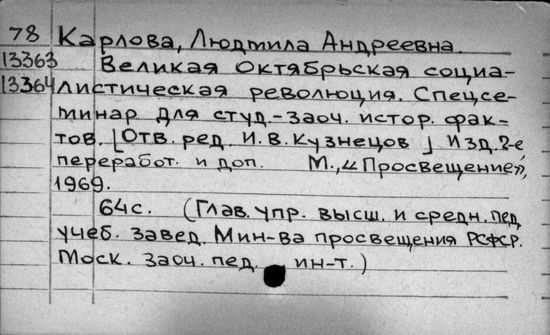 78 Карлова, Людмила Андреевна.
13363 Великая Октябрьская социа-
13364 листическая революция. Спецсе-
минар для студ.-заоч. истор. фак-
тов. [Отв. ред. И.В. Кузнецов] Изд. 2-е,
переработ. и доп. М., "Просвещение",
1969.
64с. (Глав. упр. высш. и средн. пед.
учеб. завед. Мин-ва просвещения РСФСР.
Моск. заоч. пед. ин-т.)